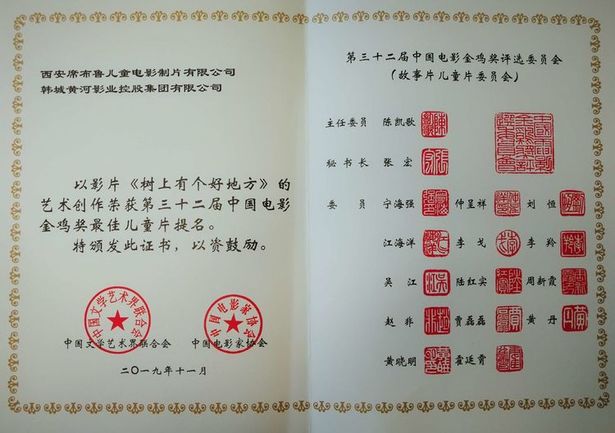 西安席布鲁儿童电影制片有限公司
韩城黄河影业控股集团有限公司
以影片《树上有个好地方》的
艺术创作荣获第三十二届中国电影
金鸡奖最佳儿童片提名。
特颁发此证书，以资鼓励。
中国文学艺术界联合会
中国电影家协会
中国文学艺术界联合会 中国电影家协会
二〇一九年十一月
第三十二届中国电影金鸡奖评选委员会
（故事片儿童片委员会）
主任委员 陈凯歌
秘书长 张宏
委员 宁海强 仲呈祥 刘恒
江海洋 李戈 李羚
吴江 陆红实 周新霞
赵非 贾磊磊 黄丹
黄晓明 霍廷霄